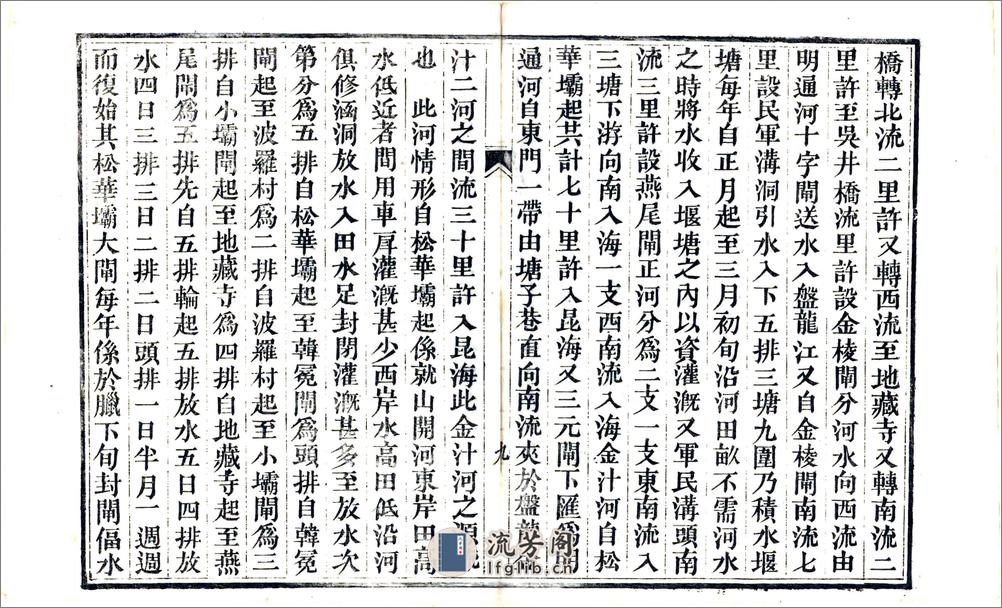 橋轉北流二里許又轉西流至地藏寺又轉南流二
里許至吳井橋流里許設金棱閘分河水向西流由
明通河十字閘送水入盤龍江又自金棱閘南流七
里設民軍溝洞引水入下五排三塘九圍乃積水堰
塘每年自正月起至三月初旬沿河田畝不需河水
之時將水收入堰塘之內以資灌溉又軍民溝頭南
流三里許設燕尾閘正河分爲二支一支東南流入
三塘下游向南入海一支西南流入海金汁河自松
華壩起共計七十里許入昆海又三元閘下匯爲明
通河自東門一帶由塘子巷直向南流夾於盤龍金
九
汁二河之間流三十里許入昆海此金汁河之源流
也 此河情形自松華壩起係就山開河東岸田高
水低近者間用車戽灌溉甚少西岸水高田低沿河
俱修涵洞放水入田水足封閉灌溉甚多至放水次
第分爲五排自松華壩起至韓冕閘爲頭排自韓冕
閘起至波羅村爲二排自波羅村起至小壩閘爲三
排自小壩閘起至地藏寺爲四排自地藏寺起至燕
尾閘爲五排先自五排輪起五排放水五日四排放
水四日三排三日二排二日頭排一日半月一週週
而復始其松華壩大閘每年係於臘下旬封閘偪水
流芳阁
lfglib.cn